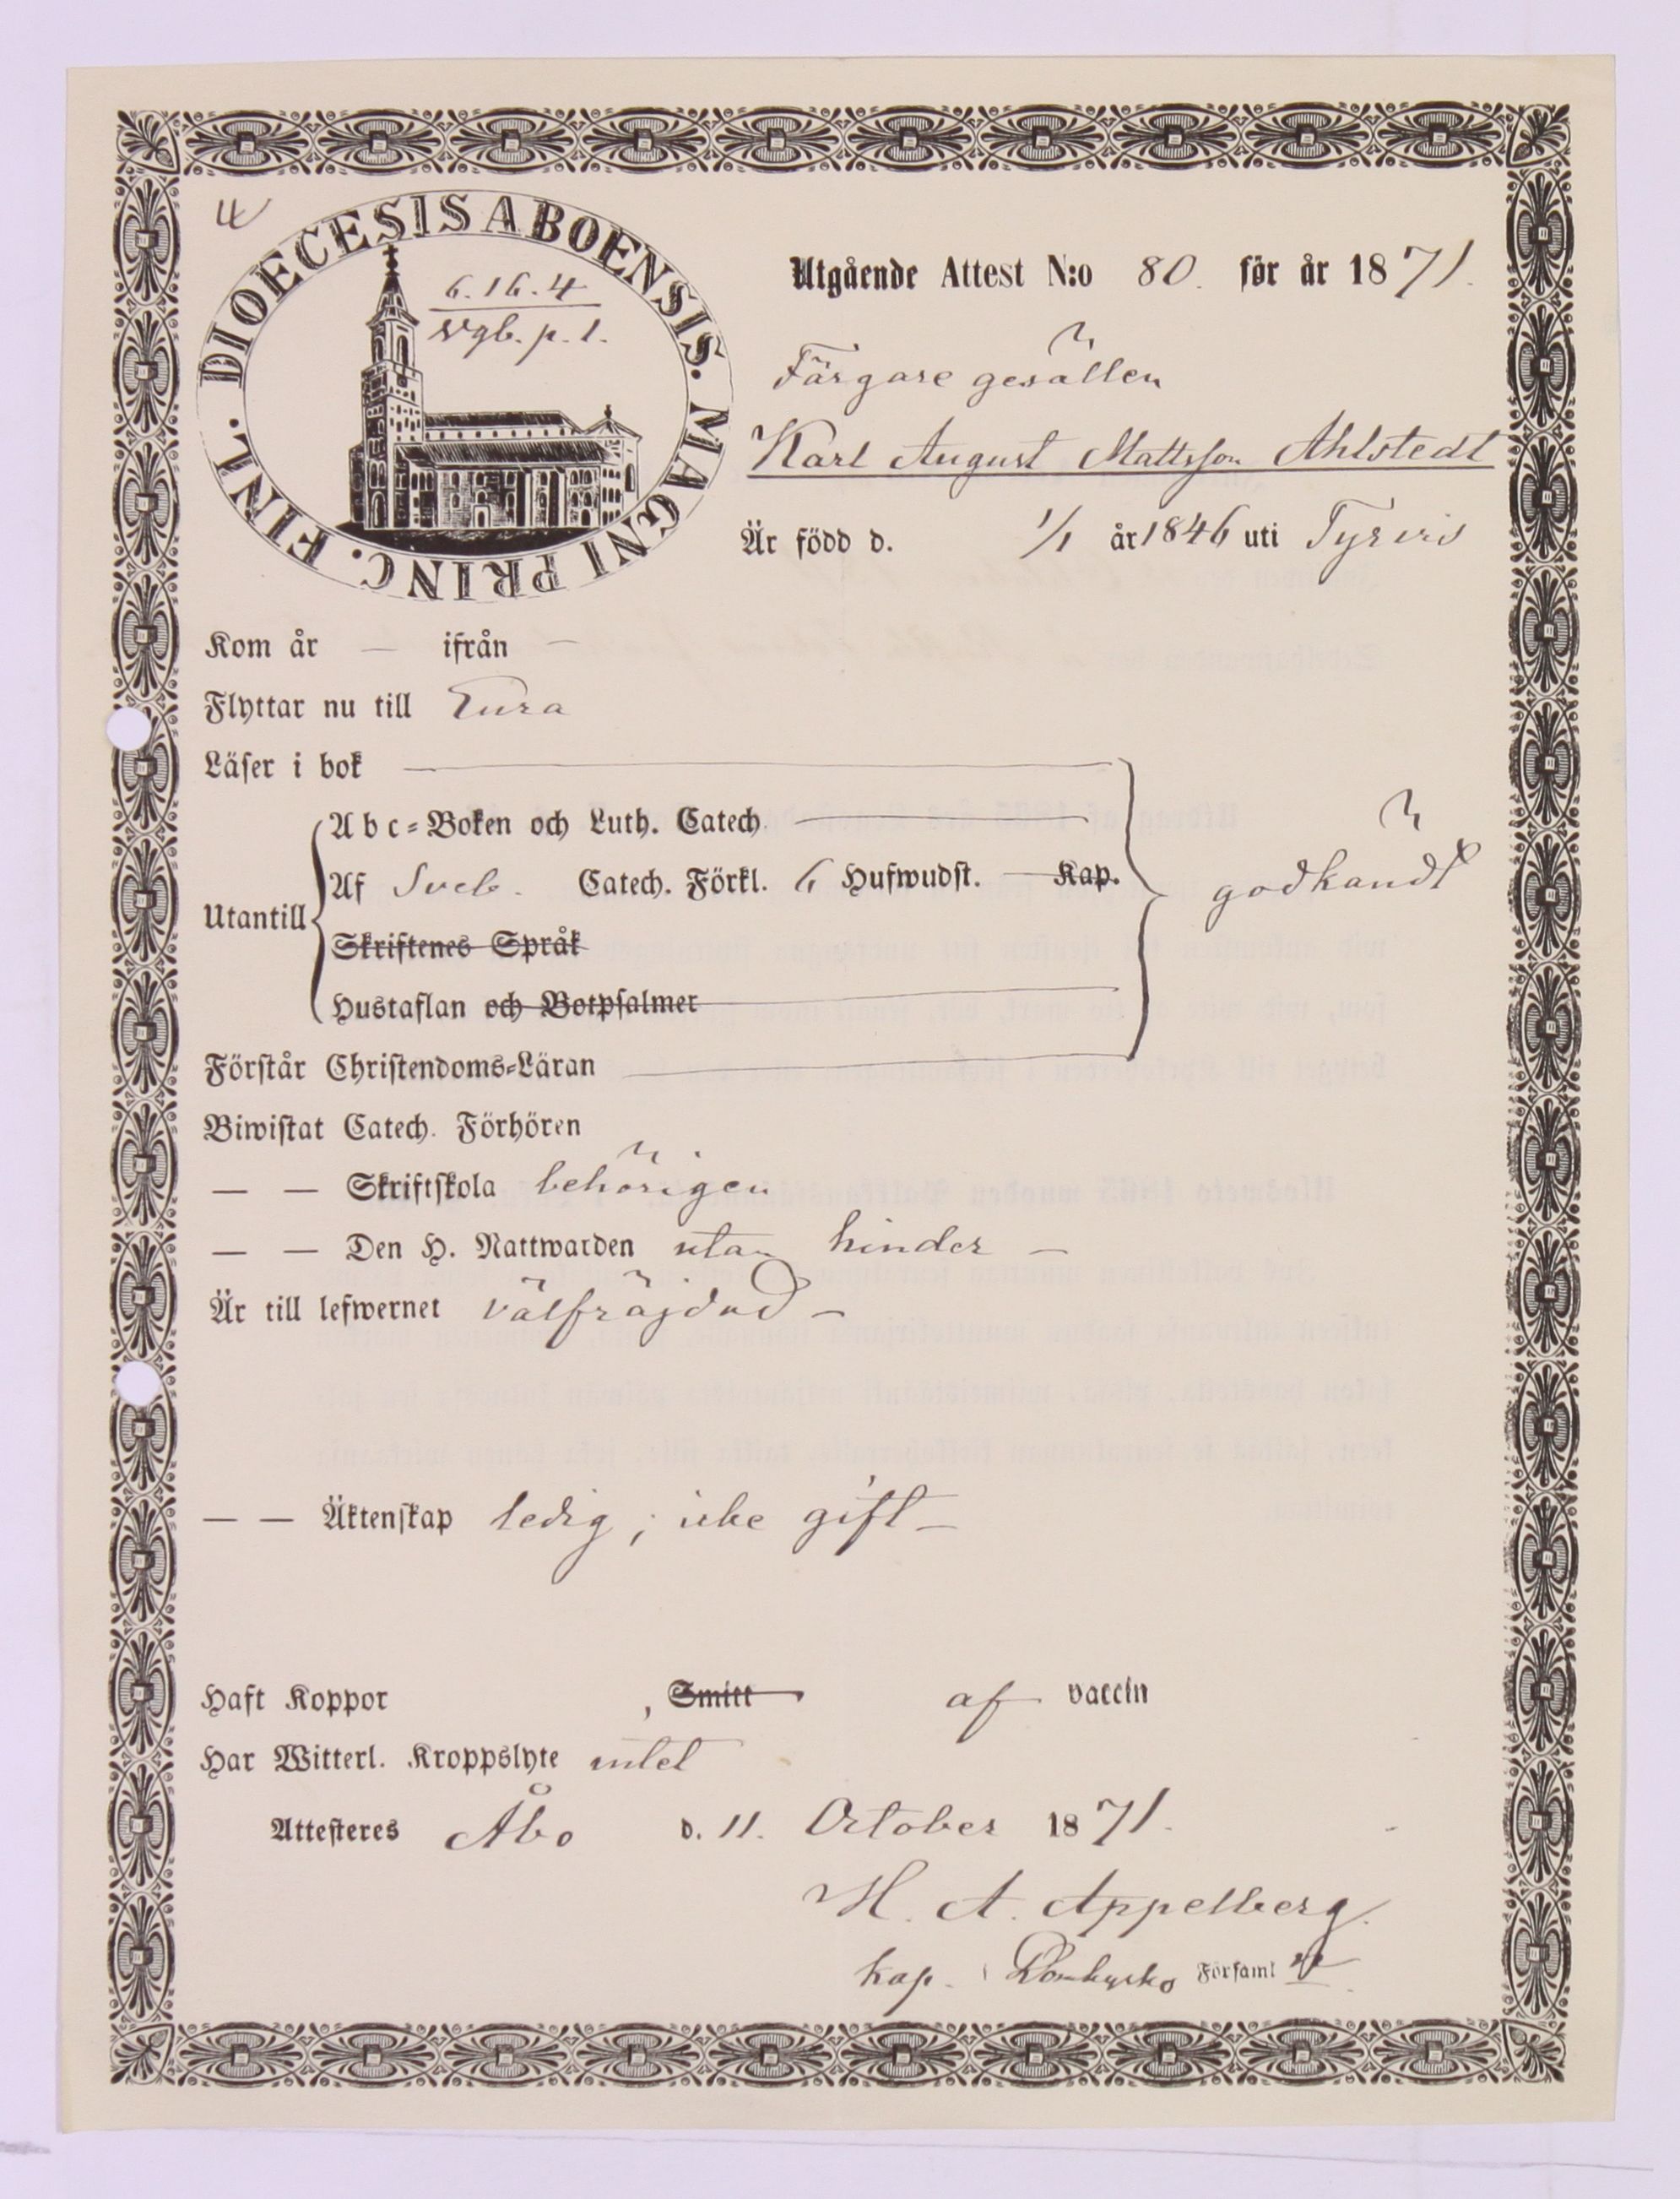 4
DIOECESIS ABOENSIS. MAGNI PRINC. FINL.
6.16.4
p. 1.
Utgående Attest N:o 80. för år 1871.
Färgare gesällen
Karl August Mattsson Ahlstedt
Är född d. 1/1 år 1846 uti Tyrvis
Kom år — ifrån —
Flyttar nu till Eura
Läser i bok
Abc-Boken och Luth. Catech.
Af Sveb. Catech. Förkl. 6 Hufwudst. — Kap.
godkändt
Utantill
Skriftenes Språk
Hustaflan och Botpsalmer
Förstår Christendoms-Läran
Biwistat Catech. Förhören
— — Skriftskola behörigen
— — Den H. Nattwarden utan hinder —
Är till lefwernet välfräjdad —
— — Äktenskap ledig; icke gift —
Haft Koppor , Smitt af vaccin
Har Witterl. Kroppslyte intet
Attesteres Åbo d. 11. October 1871.
H. A. Appelberg.
kap. i Domkyrko Församl